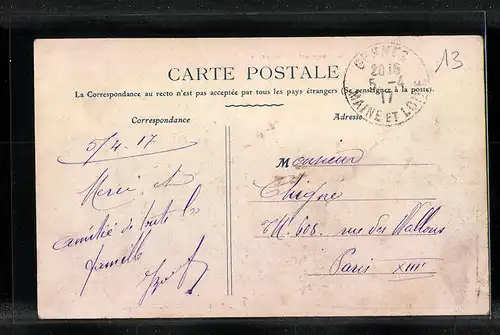 13
CARTE POSTALE
La Correspondance au recto n'est pas acceptée par tous les pays étrangers (Se renseigner à la poste).
GENNES
20 15
5 -4
17
MAINE ET LOIRE
Correspondance
Adresse
5/4.17
Merci et
amitiés de toute la
famille
Monsieur
rue des Wallons
Paris XIIIe